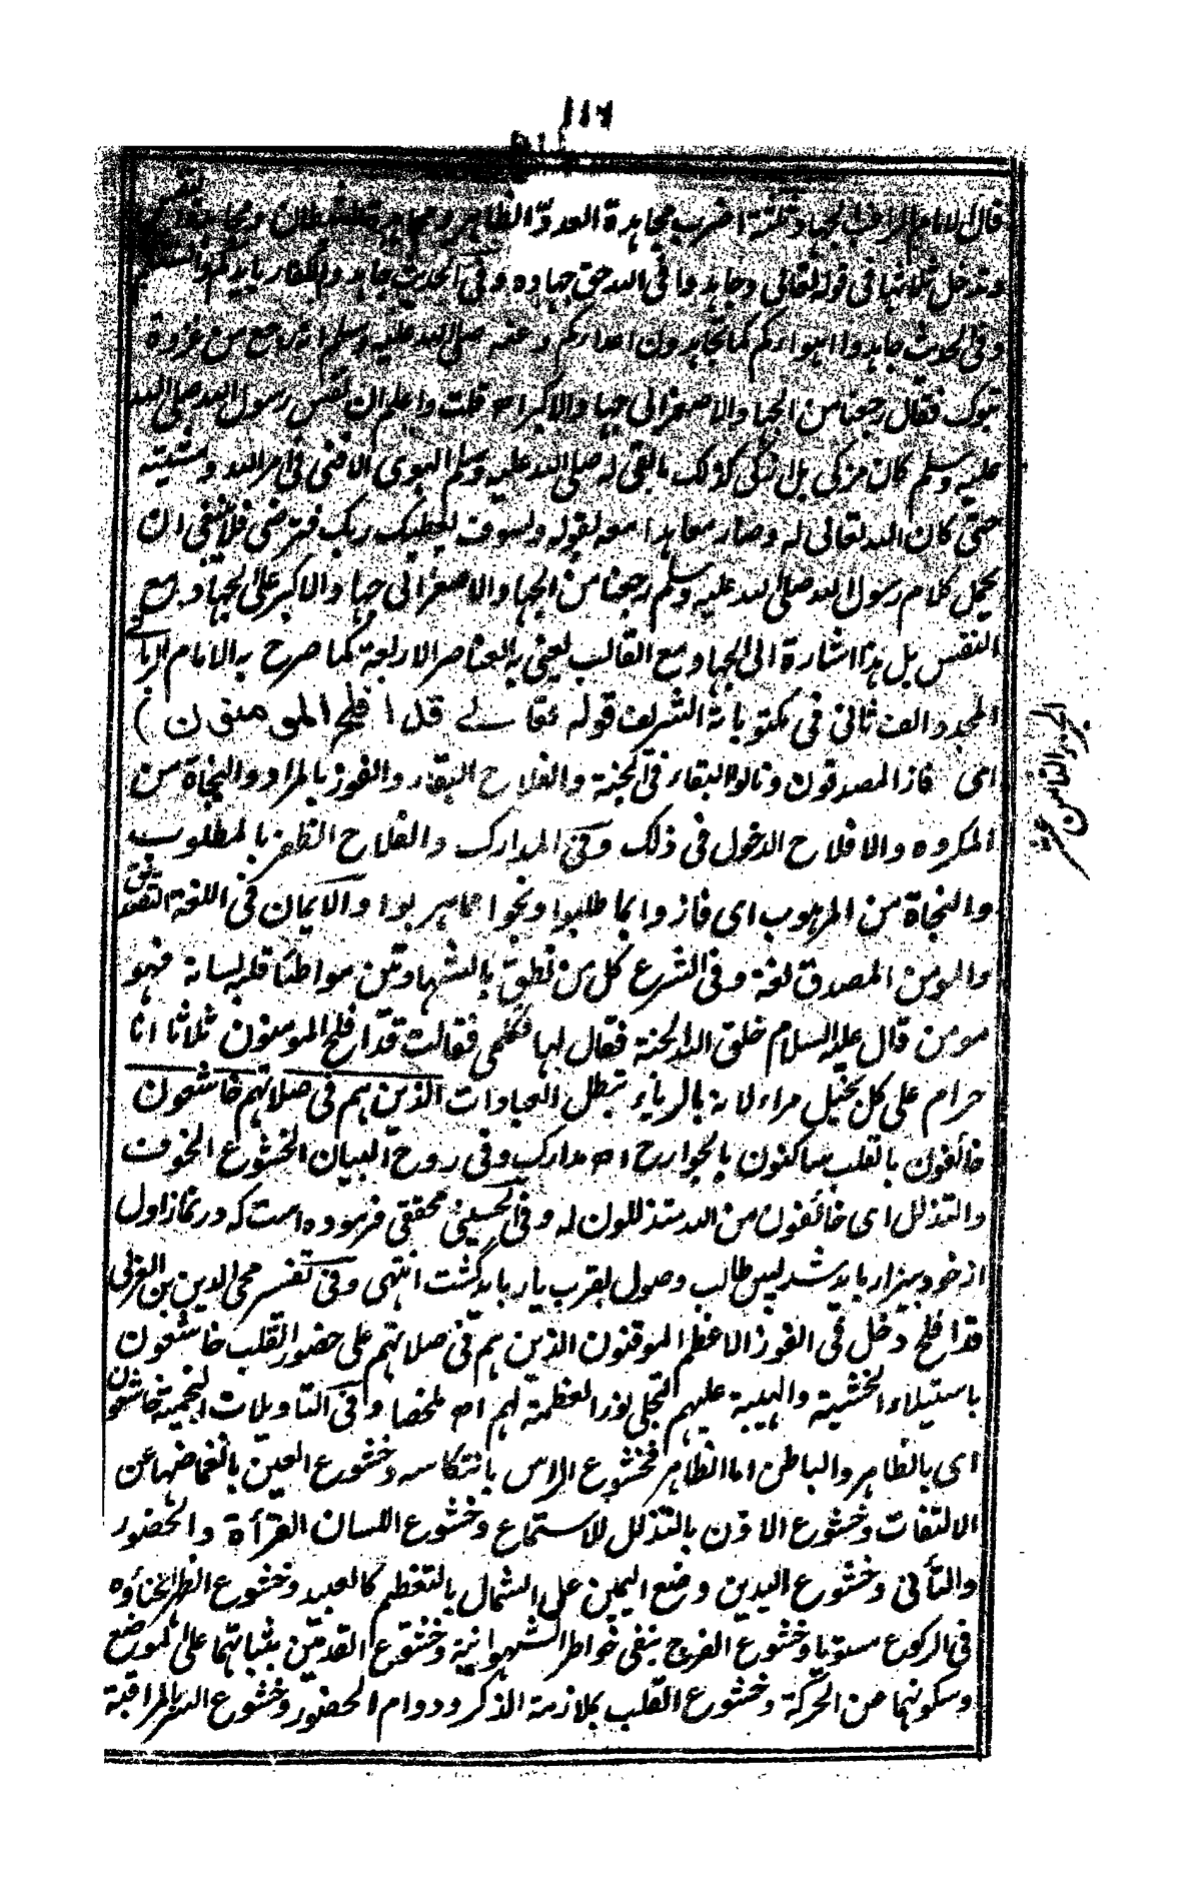 ١١٦
قال الامام الراغب الجهاد ثلثة اضرب مجاهدة العدو الظاهر ومجاهدة الشيطان ومجاهدة النفس
وتدخل ثلاثتها فى قوله تعالى وجاهدوا فى الله حق جهاده وفى الحديث جاهدوا الكفار بايديكم والسنتكم
وفى الحديث جاهدوا اهوائكم كما تجاهدون اعدائكم وعنه صلى الله عليه وسلم انه رجع من غزوة
تبوك فقال رجعنا من الجهاد الاصغر الى جهاد الاكبر اه قلت واعلم ان نفس رسول الله صلى الله
عليه وسلم كان مزكى بل تزكى كذلك بالقى له صلى الله عليه وسلم الهوى الا فنى فى امر الله ومشيته
حتى كان الله تعالى له وصار معاهدا معه لقوله ولسوف يعطيك ربك فترضى فلا ينبغى ان
يحمل كلام رسول الله صلى الله عليه وسلم رجعنا من الجهاد الاصغر الى جهاد الاكبر على الجهاد مع
النفس بل هذا اشارة الى الجهاد مع القالب يعنى به العناصر الاربعة كما صرح به الامام الربانى
المجدد الف ثانى فى مكتوباته الشريف قوله تعالى قد افلح المومنون )
اى فاز المصدقون ونالوا البقاء فى الجنة والفلاح البقاء والفوز بالمراد والنجاة من
المكروه والافلاح الدخول فى ذلك وفى المدارك والفلاح الظفر بالمطلوب
والنجاة من المرهوب اى فازوا بما طلبوا ونجوا مما هربوا والايمان فى اللغة التصديق
والمومن المصدق لغة وفى الشرع كل من نطق بالشهادتين مواطئا قلبه لسانه فهو
مومن قال عليه السلام خلق الله الجنة فقال لها تكلمى فقالت قد افلح المومنون ثلاثا انا
حرام على كل بخيل مراء لانه بالرياء تبطل العبادات الذين هم فى صلاتهم خاشعون
خائفون بالقلب ساكنون بالجوارح اه مدارك وفى روح البيان الخشوع الخوف
والتذلل اى خائفون من الله متذللون له وفى الحسينى محققى فرموده است كه در نماز اول
از خود بيزار بايد شد پس طالب وصول بقرب يار بايد گشت انتهى وفى تفسير محى الدين بن العربى
قد افلح دخل فى الفوز الاعظم الموقنون الذين هم فى صلاتهم على حضور القلب خاشعون
باستيلاء الخشية والهيبة عليهم لتجلى نور العظمة لهم اه ملخصا وفى التاويلات النجمية خاشعون
اى بالظاهر والباطن اما الظاهر فخشوع الراس بانتكاسه وخشوع العين بانغماضها عن
الالتفات وخشوع الاذن بالتذلل للاستماع وخشوع اللسان القرأة والحضور
والتأنى وخشوع اليدين وضع اليمين على الشمال بالتعظيم كالعبيد وخشوع الظهر انحناؤه
فى الركوع مستويا وخشوع الفرج بنفى خواطر الشهوانية وخشوع القدمين بثباتهما على الموضع
وسكونهما عن الحركة وخشوع القلب بملازمة الذكر ودوام الحضور وخشوع السر بالمراقبة
الجزء الثامن عشر